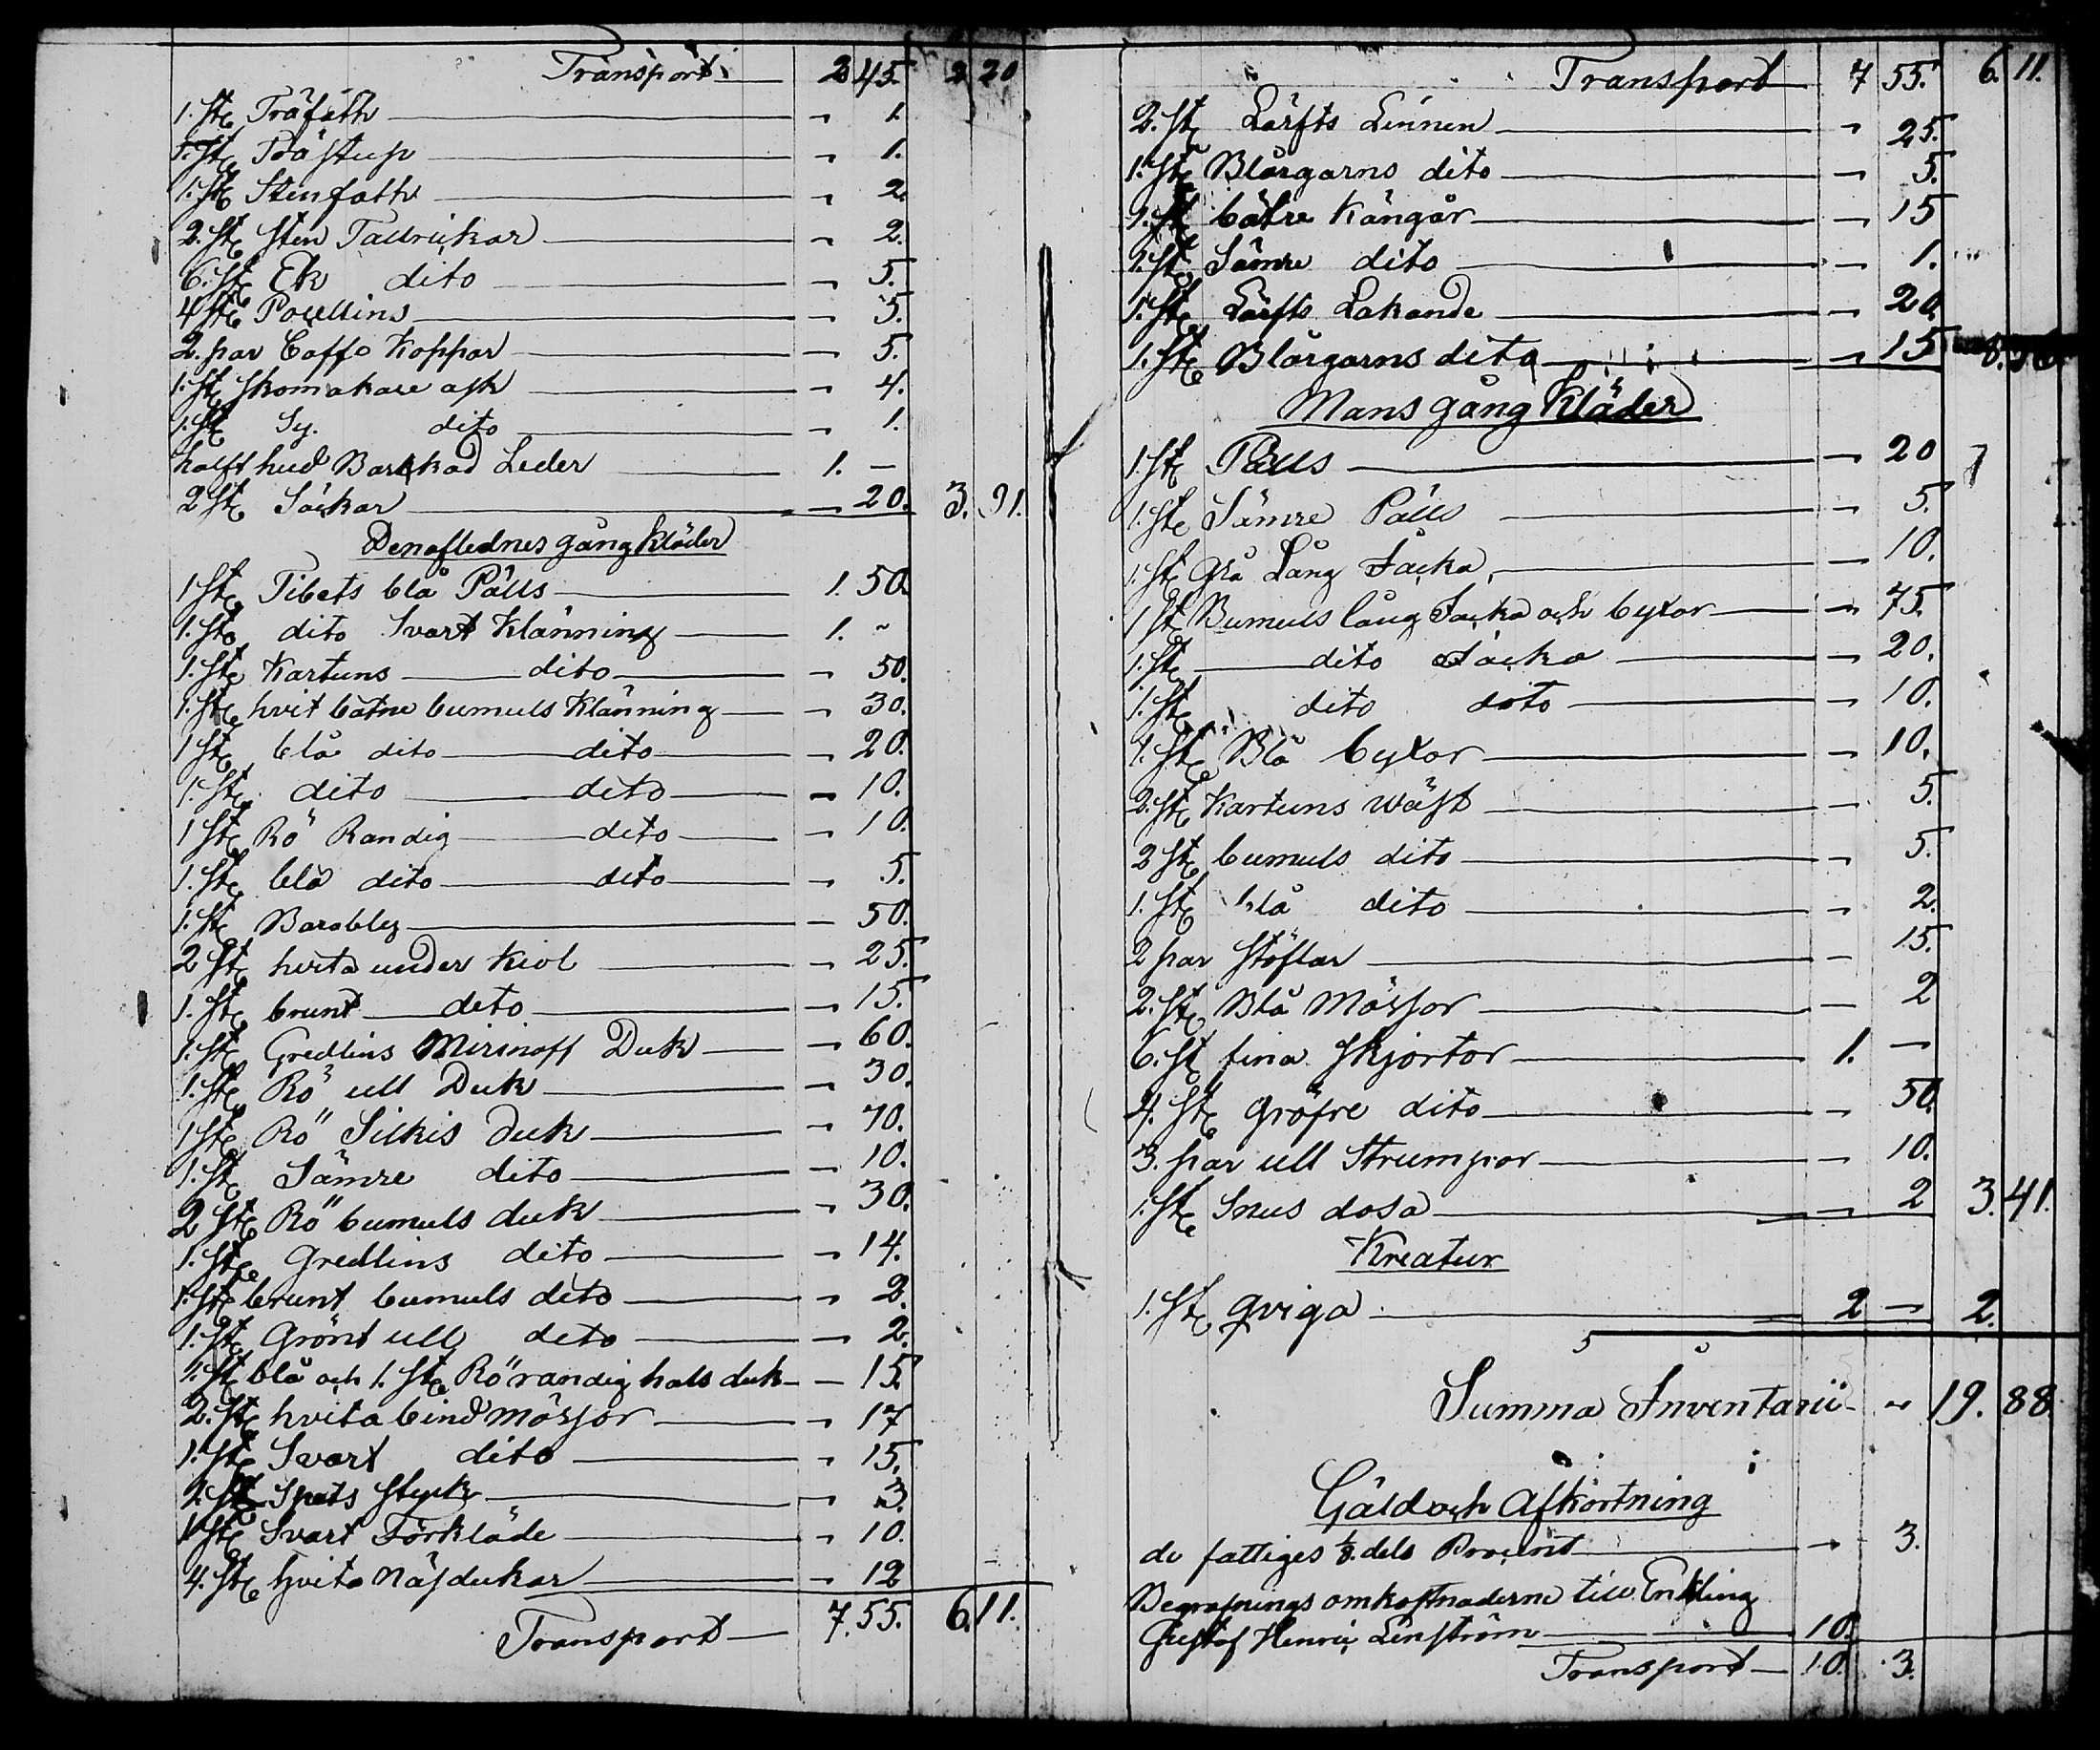 Transport 2 45. 2 20
1. st Träfath " 1.
1. st Trästup " 1.
1. st Stenfath " 2.
2. st Sten Tallrickar " 2.
6. st Ek dito " 5.
4 st Posellins " 5.
2. par Caffe Koppar " 5.
1. st skomakare ask " 4.
1. st Sy. dito " 1.
halft hud Barkad Leder 1. —
2 st Säckar " 20. 3. 91.
Denaflednes gång kläder
1 st Tibets blå Pälls 1. 50.
1. st dito Svart Klänning 1. "
1. st Kartuns dito " 50.
1. st hvit bätne bumuls Klänning " 30.
1 st blå dito dito " 20.
1. st dito dito " 10.
1 st Rö Randig dito " 10.
1. st blå dito dito " 5.
1. st Barably " 50.
2 st hvita under kiol " 25.
1. st brunt dito " 15.
1. st Gredlins Mirinoff Duk " 60.
1. st Rö ull Duk " 30.
1 st Rö Silkis duk " 70.
1. st Sämre dito " 10.
2 st Rö bumuls duk " 30.
1. st Gredlins dito " 14.
1. st brunt bumuls dito " 2.
1. st Grönt ull dito " 2.
1. st blå och 1. st Rörandig hals duk " 15.
2. st hvita bind mössor " 17
1. st Svart dito " 15.
2. st Spets styck " 3.
1 st Svart Förkläde " 10.
4. st hvita näsdukar " 12
Transport 7. 55. 6. 11.
Transport 7 55. 6. 11.
2. st Lärfts Linnen " 25.
1. st Blårgarns dito " 5.
1. st bätre Kängår " 15
1. st Sämre dito " 1.
1. st Lärfts Lakande " 20.
1. st Blårgarns dito " 15
Mans gång Kläder
1 st Pälls " 20
1. st Sämre Pälls " 5.
1. st Grå Lång Jacka " 10.
1 st Bumuls lång Jacka och byxor " 75.
1. st dito Jacka " 20.
1. st dito dito " 10.
1. st Blå byxor " 10.
2. st Kartuns wäst " 5.
2 st bumuls dito " 5.
1. st blå dito " 2.
2 par stöflar " 15.
2. st Blå Mössor " 2
6. st fina skjortor 1. —
4. st Gröfre dito " 50.
3. par ull Strumpor " 10.
1. st Snus dosa " 2 3. 41.
Kreatur
1. st qviga 2 — 2.
Summa Inventarii " 19. 88.
Gäld och Afkortning
de fattiges 1/8. dels Prosent " 3.
Begrafnings omkostnaderne till Enkling
Gustaf Henric Lenström 10.
Transport 10. 3.